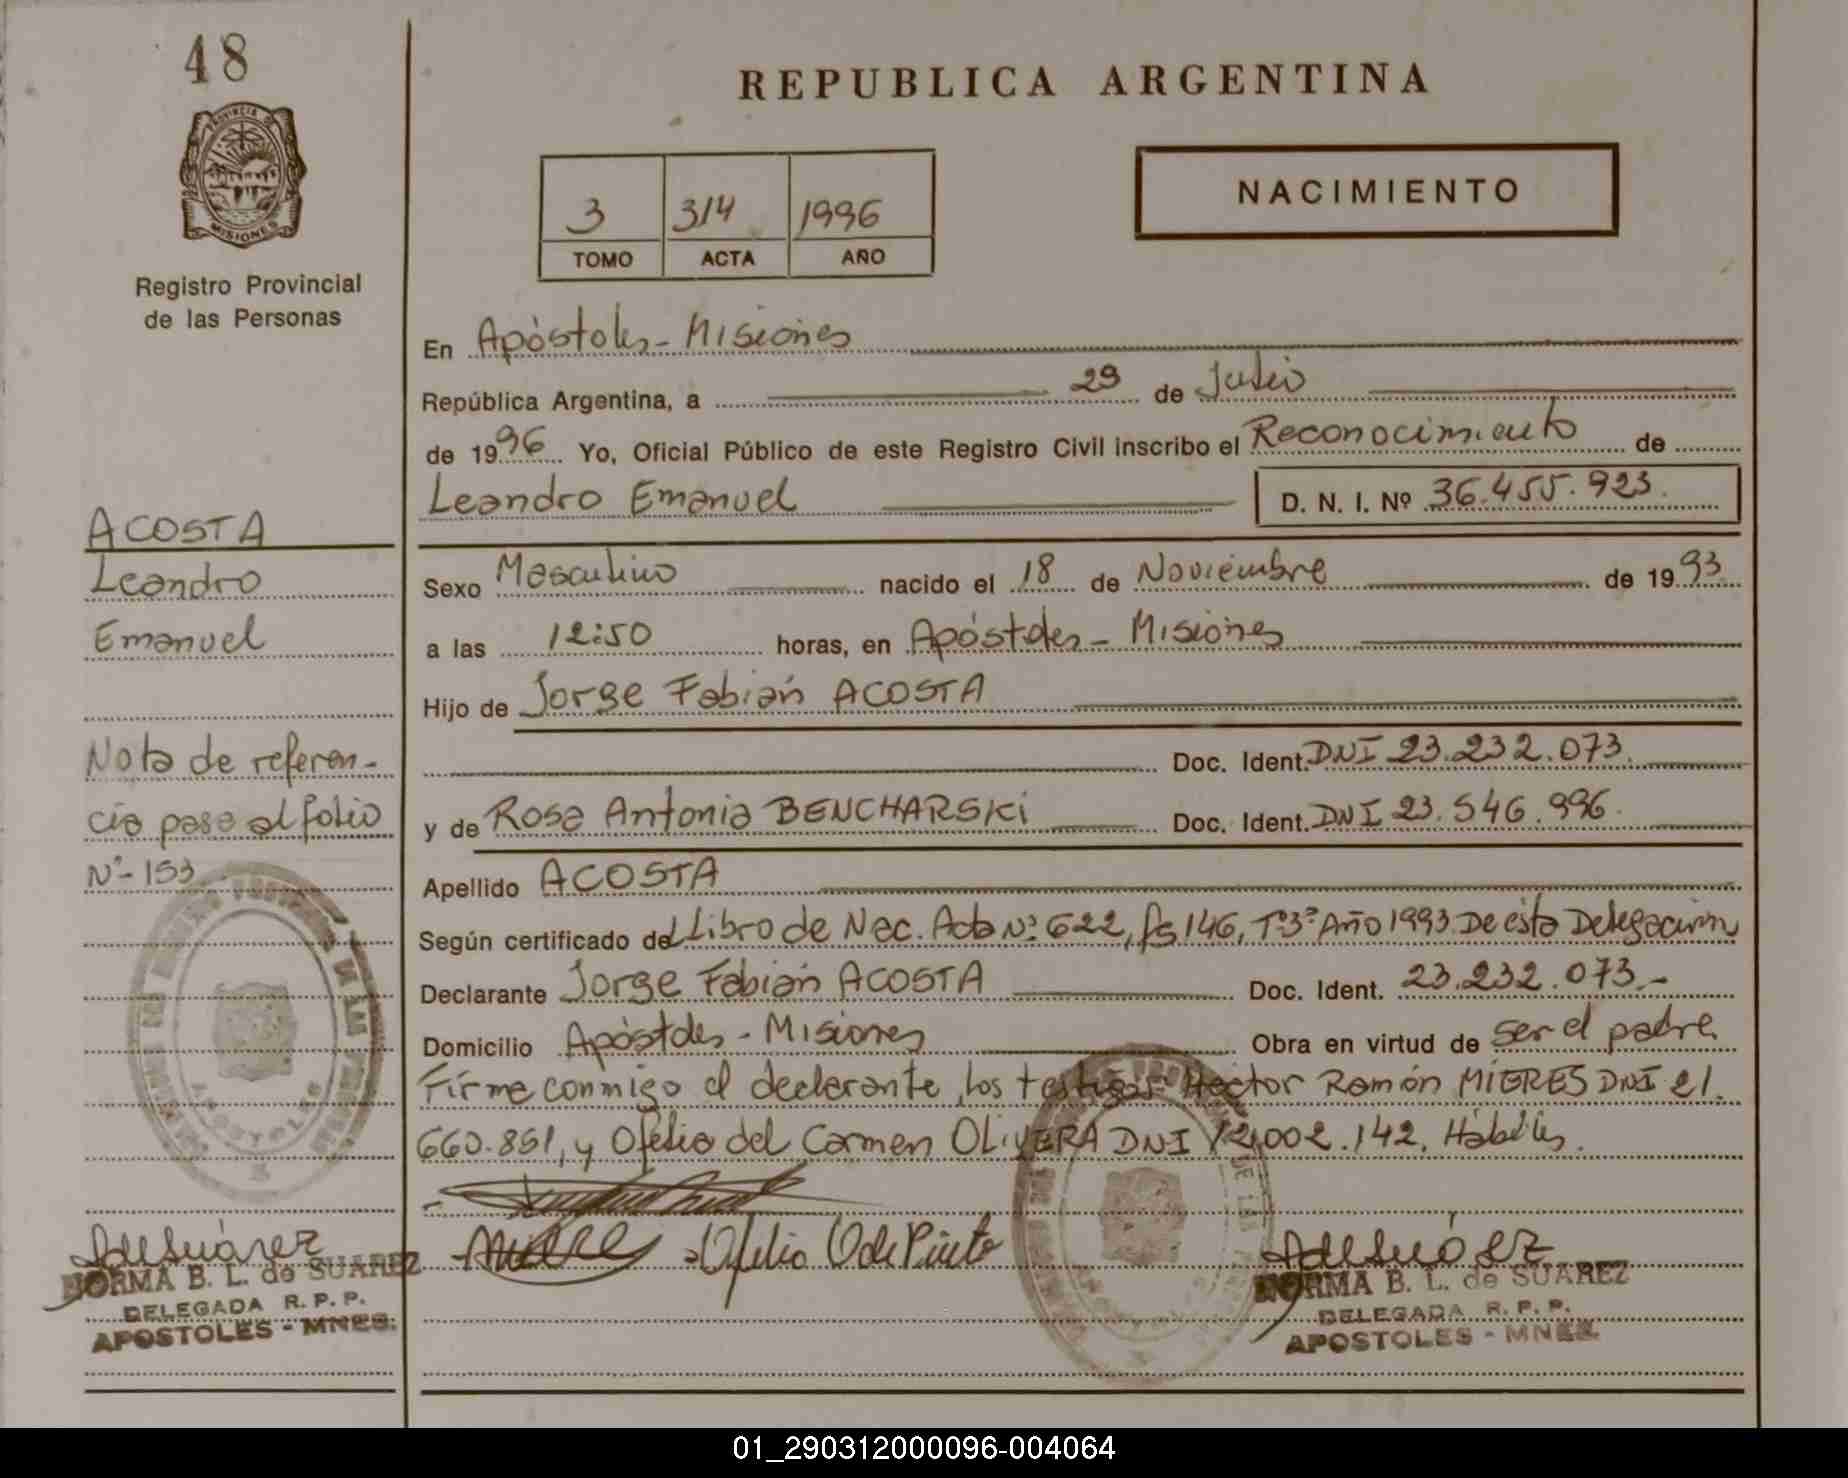 48
PROVINCIA DE
MISIONES
Registro Provincial
de las Personas
REPUBLICA ARGENTINA
3 314 1996
TOMO ACTA AÑO
NACIMIENTO
En Apóstoles - Misiones
República Argentina, a 29 de Julio
de 1996 Yo, Oficial Público de este Registro Civil inscribo el Reconocimiento de
Leandro Emanuel D. N. I. Nº 36.455.923.
Sexo Masculino nacido el 18 de Noviembre de 1993
a las 12:50 horas, en Apóstoles - Misiones
Hijo de Jorge Fabián ACOSTA
Doc. Ident. DNI 23.232.073.
y de Rosa Antonia BENCHARSKI Doc. Ident. DNI 23.546.996.
Apellido ACOSTA
Según certificado del Libro de Nac. Acta Nº 622, fs 146, Tº 3º Año 1993 De ésta Delegación
Declarante Jorge Fabián ACOSTA Doc. Ident. 23.232.073.-
Domicilio Apóstoles - Misiones Obra en virtud de ser el padre
Firma conmigo el declarante, los testigos Hector Ramón MIERES DNI 21.
660.851, y Ofelia del Carmen OLIVERA DNI 12.002.142, Hábiles.
Ofelia O de Pinto
AdeSuárez
NORMA B. L. de SUAREZ
DELEGADA R. P. P.
APOSTOLES - MNES.
ACOSTA
Leandro
Emanuel
Nota de referen-
cia pasa al folio
Nº- 153
AdeSuárez
NORMA B. L. de SUAREZ
DELEGADA R. P. P.
APOSTOLES - MNES.
01_290312000096-004064